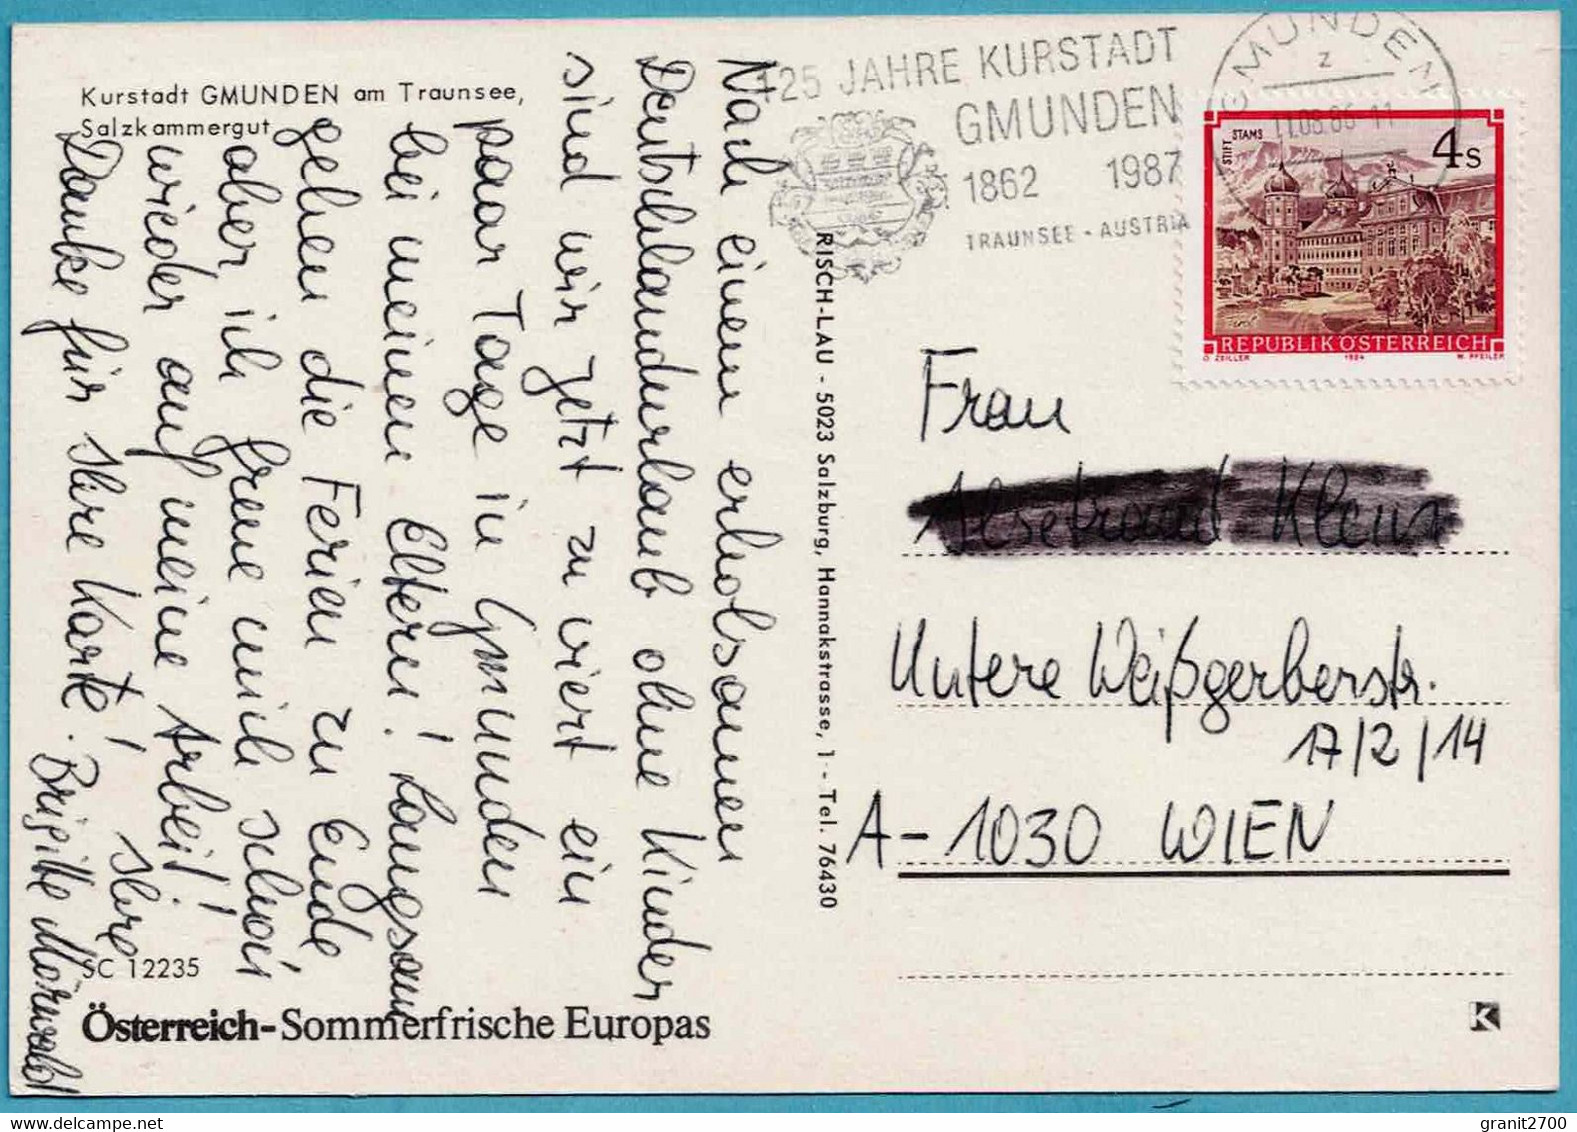 Kurstadt GMUNDEN am Traunsee,
Salzkammergut
Nach einem erholsamen
Deutschlandurlaub ohne Kinder
sind wir jetzt zu viert ein
paar Tage in Gmunden
bei meinen Eltern! Langsam
gehen die Ferien zu Ende
aber ich freue mich schon
wieder auf meine Arbeit!
Danke für Ihre Karte! Ihre
Brigitte Mörwald
SC 12235
Österreich-Sommerfrische Europas
RISCH-LAU - 5023 Salzburg, Hannakstrasse, 1 - Tel. 76430
125 JAHRE KURSTADT
GMUNDEN
1862 1987
TRAUNSEE - AUSTRIA
GMUNDEN
z
11.08.86-11
STIFT STAMS
4s
REPUBLIK ÖSTERREICH
O. ZEILLER 1984 W. PFEILER
Frau
Untere Weißgerberstr.
17/2/14
A-1030 WIEN
K
granit2700